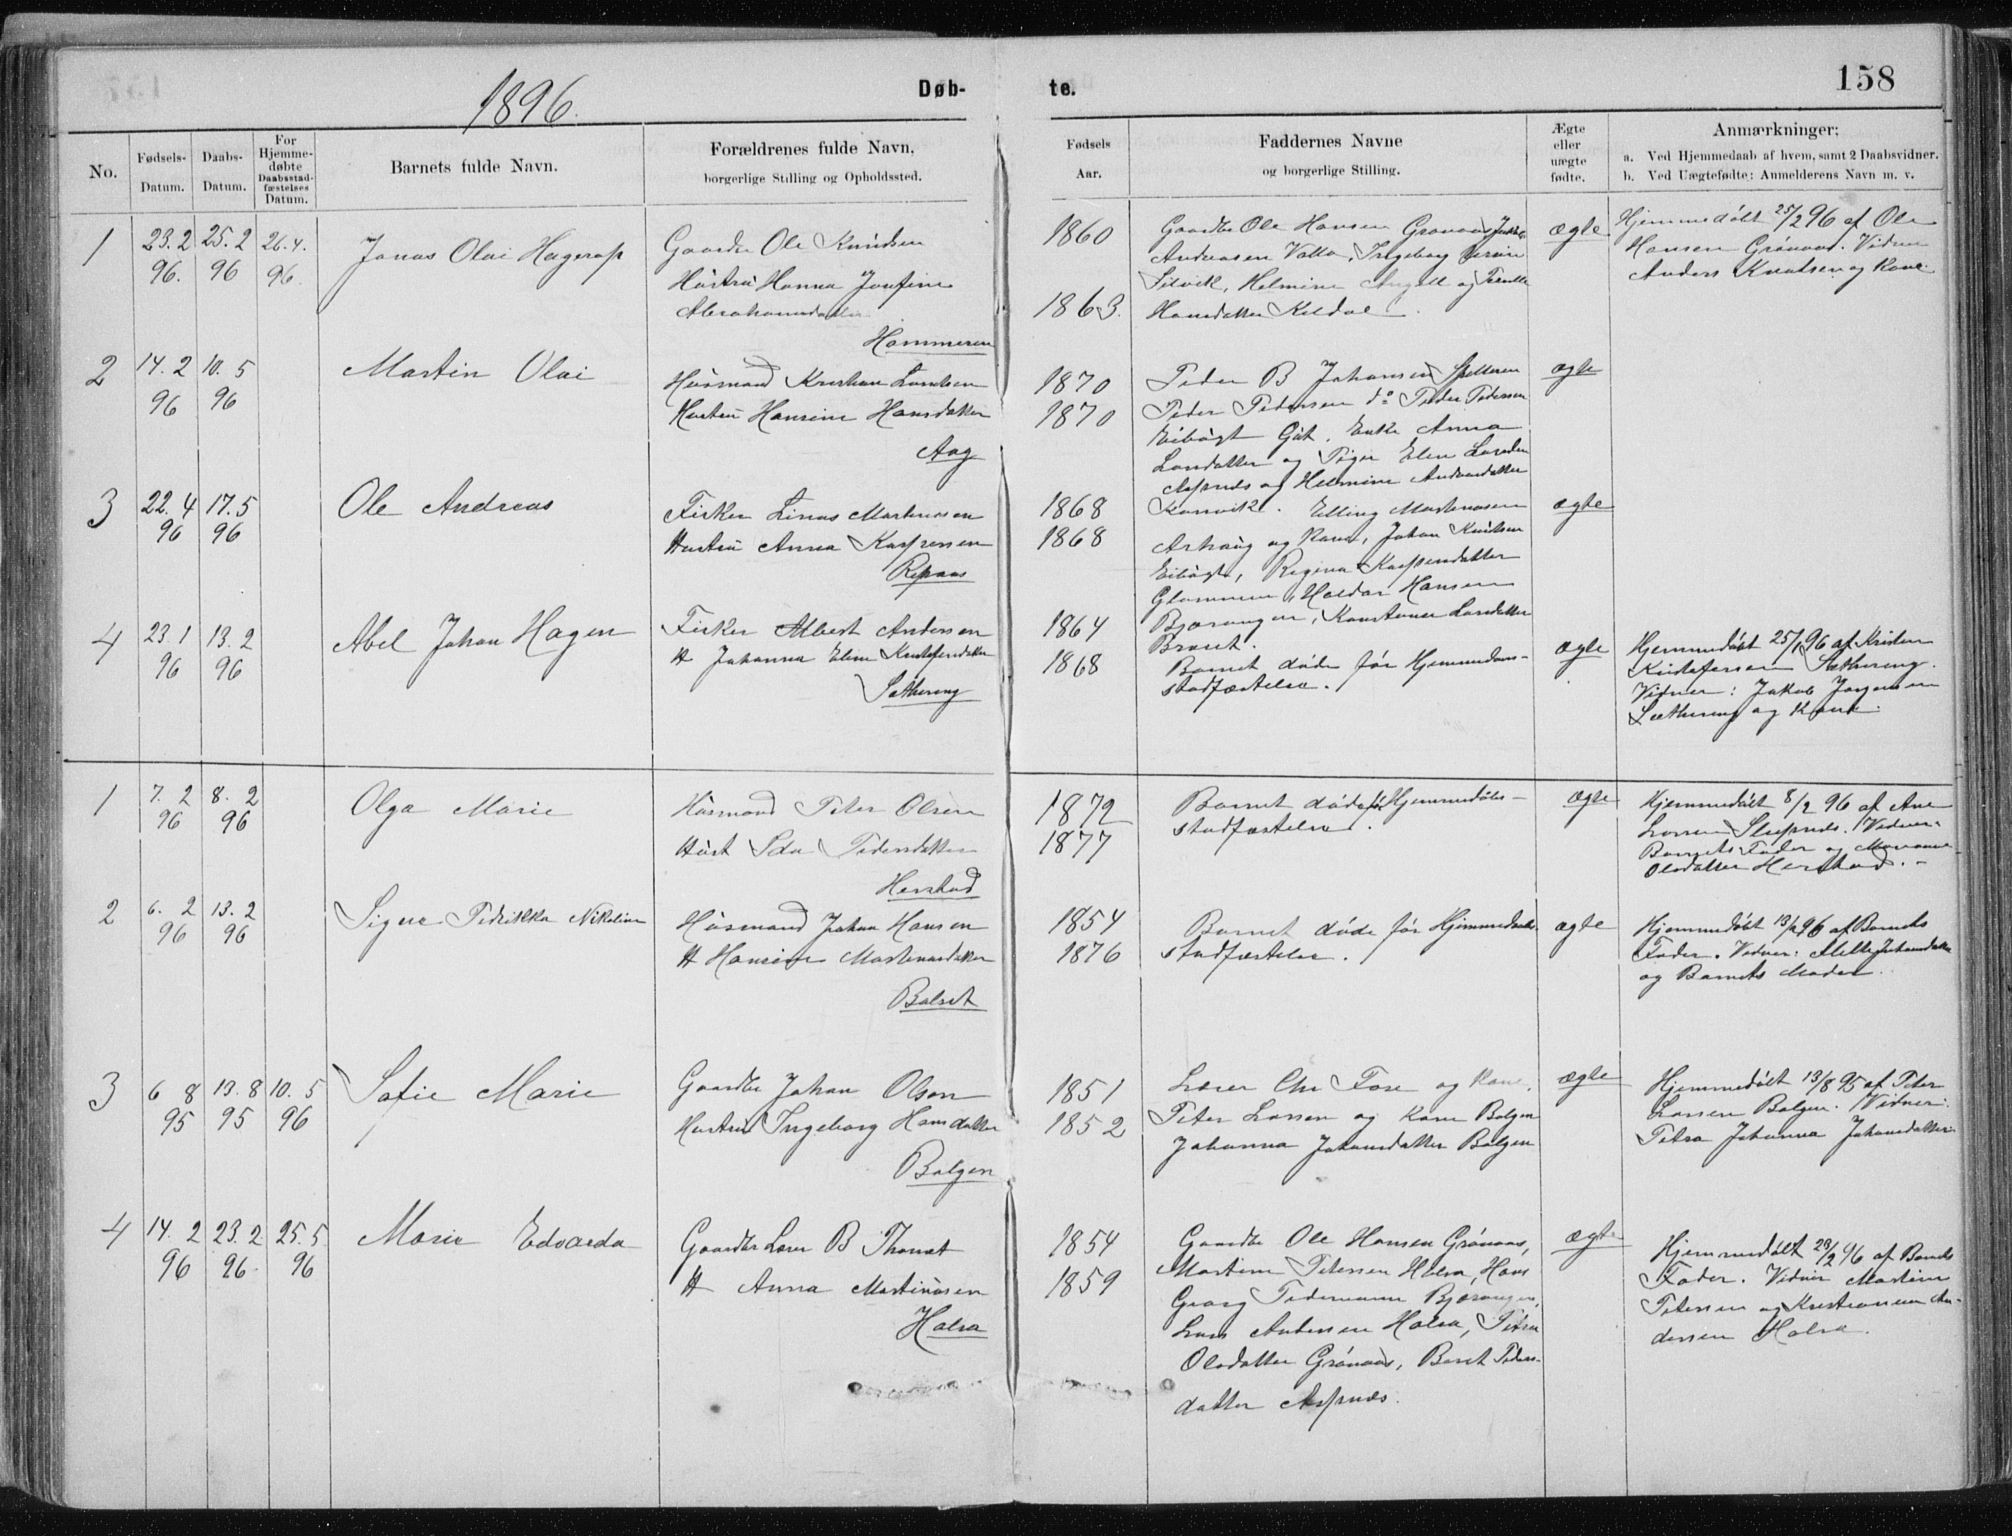 158
1896.
Døb- te.
No.
Fødsels-
Datum.
Daabs-
Datum.
For
Hjemme-
døbte
Daabsstad-
fæstelses
Datum.
Barnets fulde Navn.
Forældrenes fulde Navn,
borgerlige Stilling og Opholdssted.
Fødsels
Aar.
Faddernes Navne
og borgerlige Stilling.
Ægte
eller
uægte
fødte.
Anmærkninger:
a. Ved Hjemmedaab af hvem, samt 2 Daabsvidner.
b. Ved Uægtefødte: Anmelderens Navn m. v.
1
23.2 25.2 26.4.
96. 96 96.
Jonas Olai Hagerup
Gaardbr Ole Knudsen
Hustru Hanna Josefine
Hammeren
1860
1863.
Gaardbr Ole Hansen Grønaas
Andreasen Valla, Ingeborg
Selvik, Helmine Angell og
Hansdatter Kildal.
ægte
Hjemmedøbt 25/2 96 af Ole
Hansen Grønaas. Vidner
Anders Knutsen og Kone.
2
14.2 10.5
96 96
Martin Olai
Husmand Kristian Larsen
Hustru Hansine Hansdatter
Aag
1870
1870
Peder B Johansen
Peder Pedersen do Peder Pedersen
Gut. Enke Anna
Larsdatter og Pige Elen
og Helmine
ægte
3
22.4 17.5
96 96
Ole Andreas
Fisker Linus Martinusen
Hustru Anna Kaspersen
Ripnas
1868
1868
Elling Martinusen
og Kone, Johan Knutsen
Regina Kaspersdatter
Haldor Hansen
Bjærangen,
ægte
4
23.1 13.2
96 96
Abel Johan Hagen
Fisker Albert Andersen
H Johanna Eline
Sæthereng
1864
1868
Barnet døde før Hjemmedaabs-
stadfæstelse.
ægte
Hjemmedøbt 25/1 96 af
Sæthereng.
Vidner: Jakob Jørgensen
Sæthereng og Kone.
1
7.2 8.2
96 96
Olga Marie
Husmand Peter Olsen
Hust Ida Pedersdatter
Herstad
1872
1877
Barnet døde før Hjemmedøbs-
stadfæstelse.
ægte
Hjemmedøbt 8/2 96 af Ane
Vidner:
Barnets Fader og
Olsdatter Herstad.
2
6.2 13.2
96 96
Signe Fedrikka Nikoline
Husmand Johan Hansen
H Hansine Martinusdatter
Balset
1854
1876
Barnet døde før Hjemmedaabs-
stadfæstelse.
ægte
Hjemmedøbt 13/2 96 af Barnets
Fader. Vidner:
og Barnets Moder.
3
6 8 13.8 10.5
95 95 96
Sofie Marie
Gaardbr Johan Olsen
Hustru Ingeborg Hansdatter
Bolgen
1851
1852
Lærer Chr Fore og Kone.
Peter Larsen og Kone Bolgen
Johanna Johansdatter Bolgen
ægte
Hjemmedøbt 13/8 95 af Peter
Larsen Bolgen. Vidner:
Petra Johanna Johansdatter
4
14.2 23.2 25.5
96 96 96
Marie Edvarda
Gaardbr Lærer B Thonæt
H Anna Martinusen
Halsa
1854
1859
Gaardbr Ole Hansen Grønaas,
Martin Petersen Halsa, Hans
Georg Bjærangen,
Lars Andersen Halsa, Petra
Olsdatter Grønaas, Beret Peders-
datter Aspnæs.
ægte
Hjemmedøbt 23/2 96 af Barnets
Fader. Vidner Martin
Petersen og Kristianna An-
dersen Halsa.